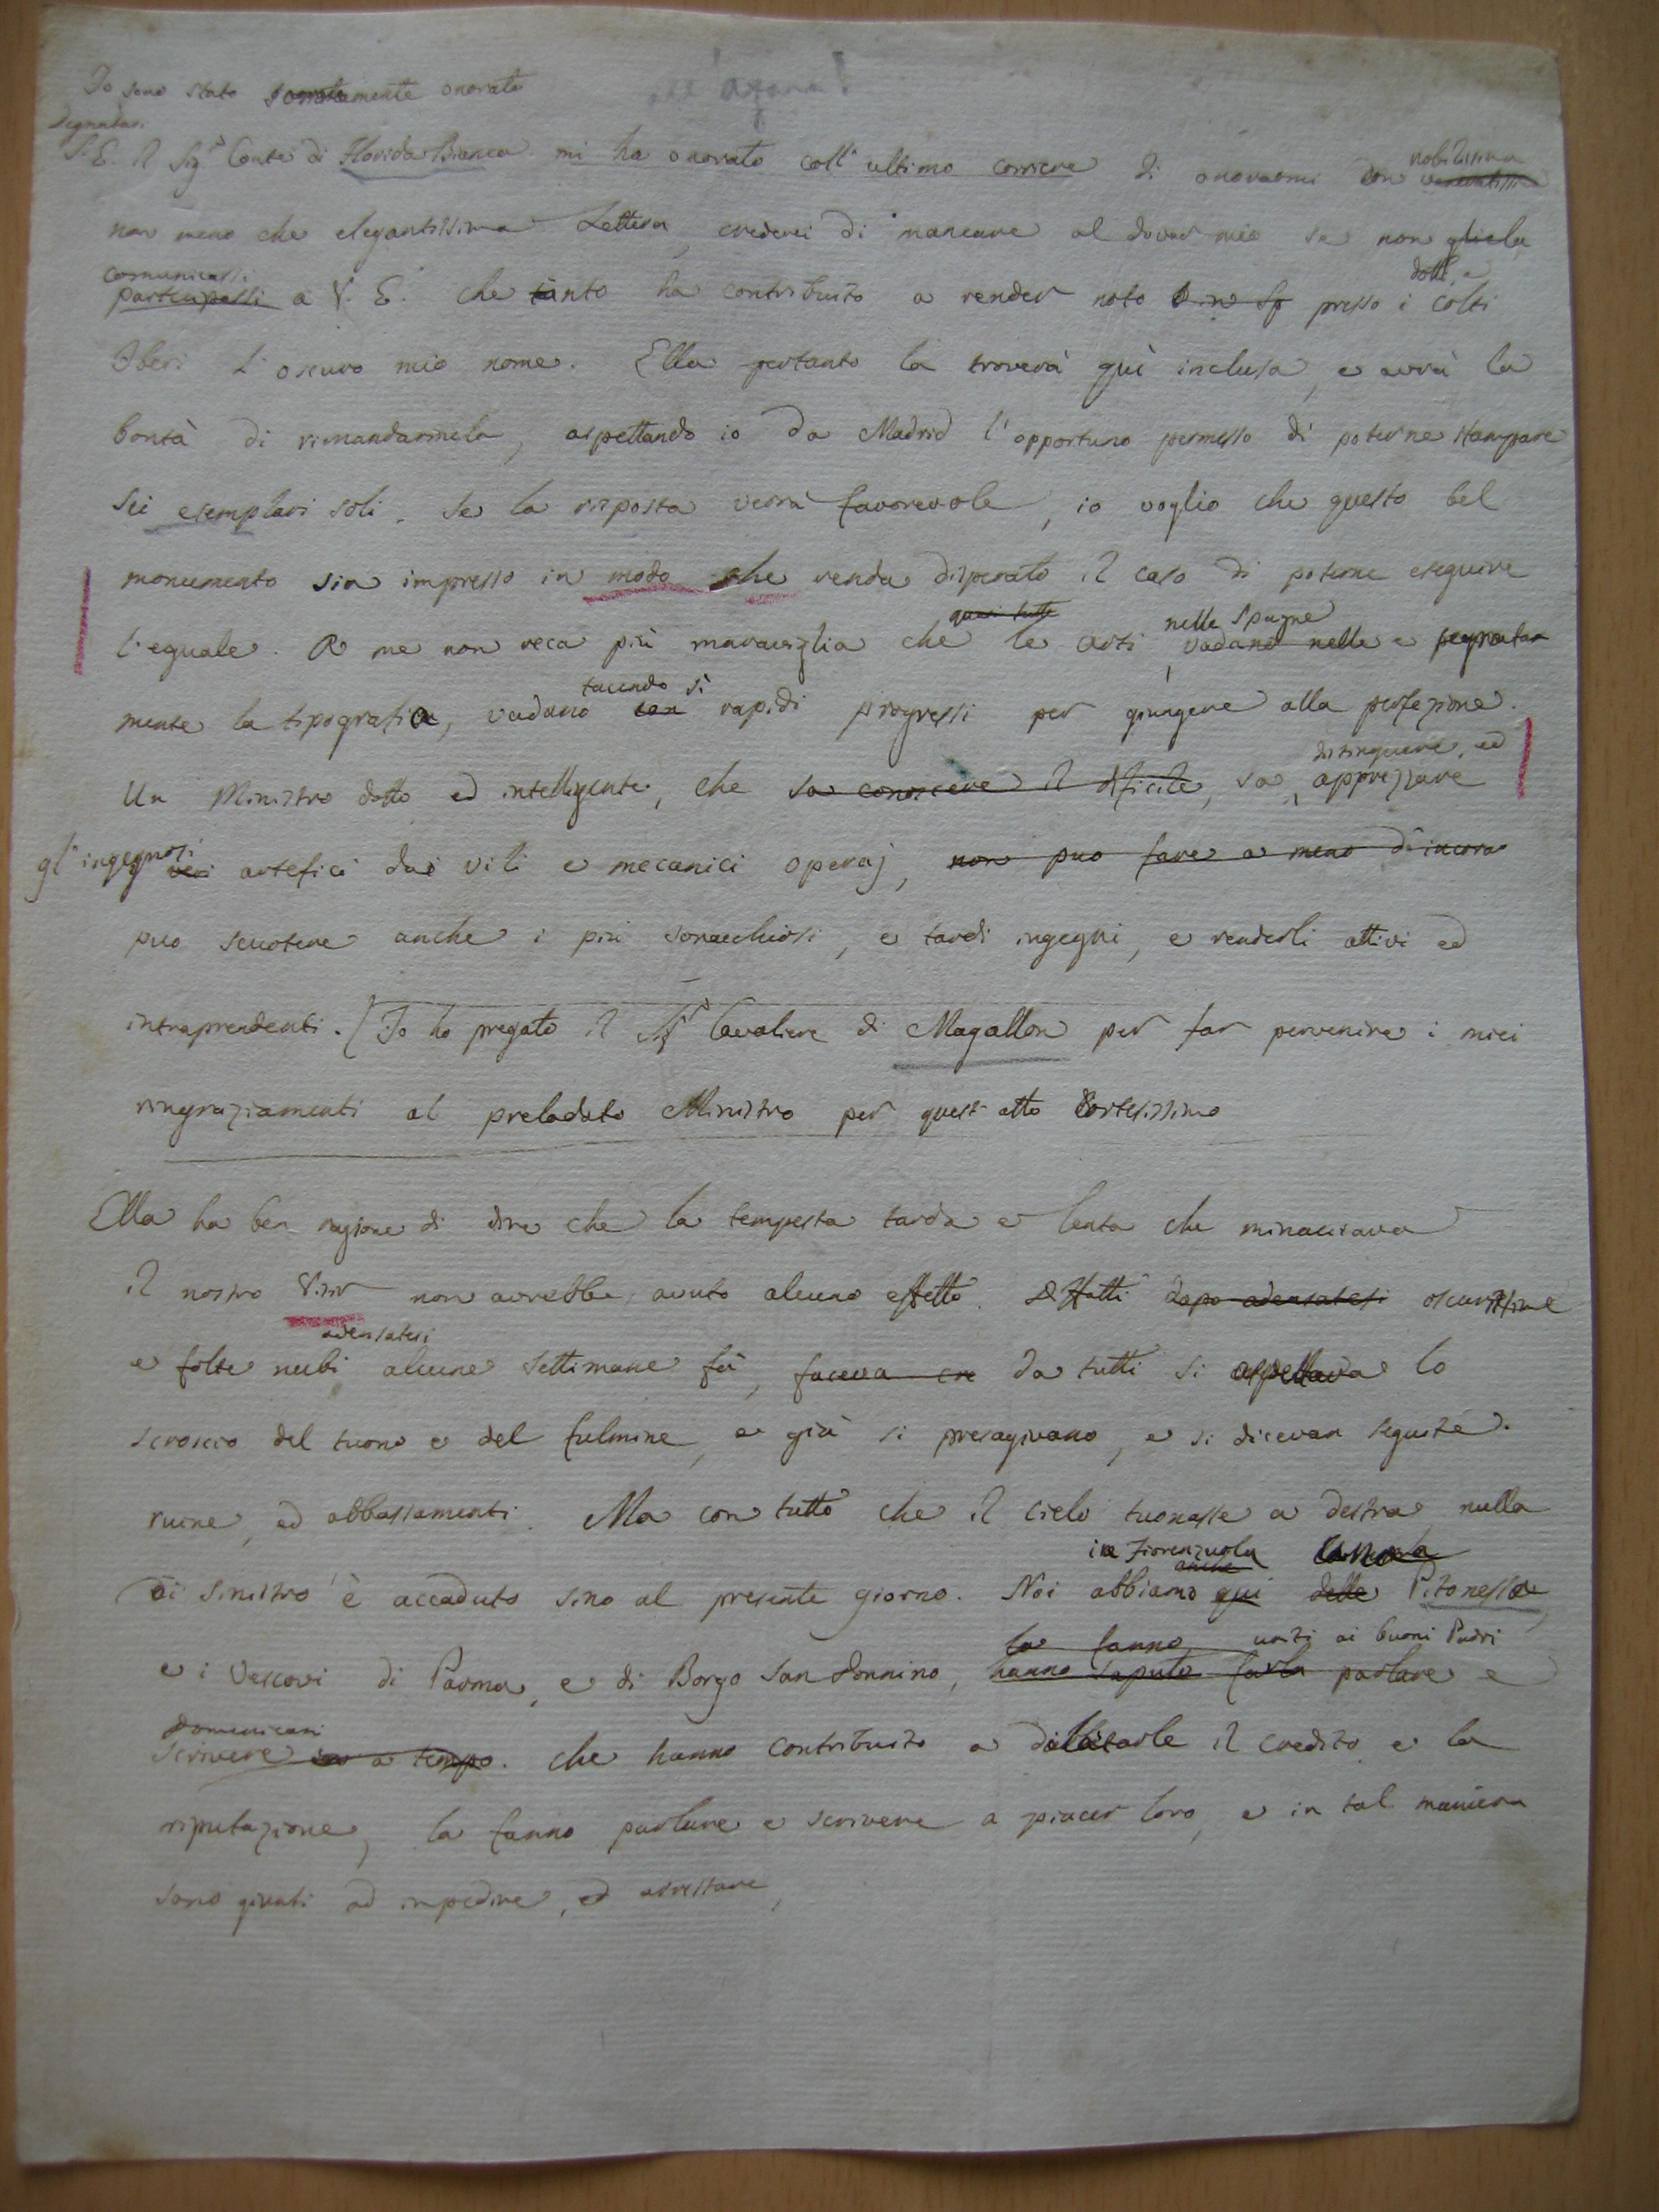 Io sono stato somamente onorato
all'Azara!
Degnatasi
S. E. il Sig.r Conte di Florida Bianca mi ha onorato coll'ultimo corriere di onorarmi con veneratissima
nobilissima
non meno che elegantissima Lettera, crederei di mancare al dover mio se non gliela
comunicassi
partecipassi a V. E. che tanto ha contribuito a render noto presso i colti
dotti, e
Iberi l'oscuro mio nome. Ella pertanto la troverà quì inclusa, e avrà la
bontà di rimandarmela, aspettando io da Madrid l'opportuno permesso di poterne stampare
sei esemplari soli. Se la risposta verrà favorevole, io voglio che questo bel
monumento sia impresso in modo che renda disperato il caso di poterne eseguire
l'eguale. A me non reca più maraviglia che le arti, vadano nelle e segnata
quasi tutte nelle Spagne
mente la tipografia, vadano con rapidi progressi per giungere alla perfezione.
facendo sì
Un Ministro dotto ed intelligente, che sa conoscere il dificile, sa, apprezzare
distinguere, ed
gl'ingegnosi
veri artefici dai vili e mecanici operaj, non puo fare a meno di incora
puo scuotere anche i più sonnecchiosi, e tardi ingegni, e renderli attivi ed
intraprendenti. Io ho pregato il Sig.r Cavaliere di Magallon per far pervenire i miei
ringraziamenti al prelodato Ministro per quest'atto cortesissimo
Ella ha ben ragione di dire che la tempesta tarda e lenta che minacciava
il nostro non avrebbe avuto alcuno effetto. Diffatti dopo adensatesi oscurissime
adensatesi
e folte nubi alcune settimane fà, faceva cre da tutti si aspettava lo
scroscio del tuono e del fulmine, e già si presagivano, e si dicevan seguite
ruine, ed abbassamenti. Ma con tutto che il cielo tuonasse a destra, nulla
di sinistro è accaduto sino al presente giorno. Noi abbiamo qui delle Pitonesse
in Fiorenzuola anche
e i Vescovi di Parma, e di Borgo San Donnino, hanno saputo farla parlare e
la fanno uniti ai buoni Padri
Domenicani
scrivere a tempo. che hanno contribuito a dilatarle il credito e la
riputazione, la fanno parlare e scrivere a piacer loro, e in tal maniera
sono giunti ad impedire, ed arrestare,